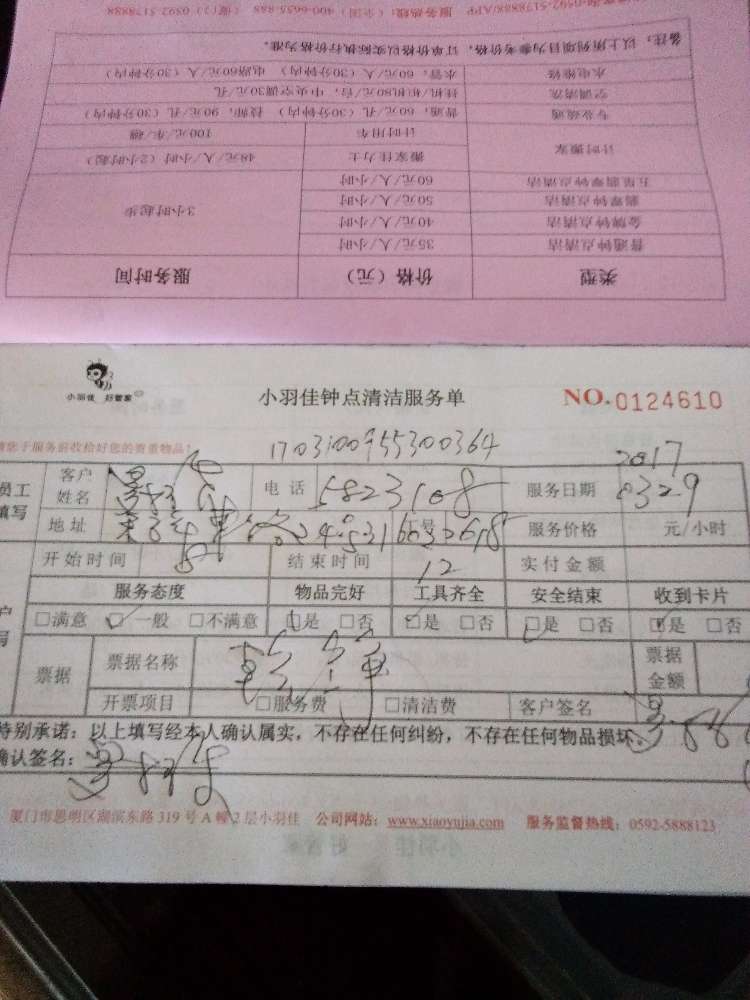 服务热线：（全国）400-6655-888 （厦门）0592-5178888
备注：以上所列项目为参考价格，订单价格以实际执行价格为准。
水电维修 水管：60元/人（30分钟内） 电路60元/人（30分钟内）
空调清洗 挂机/柜机80元/台，中央空调30元/孔
专业疏通 普通：60元/孔（30分钟内） 技师：90元/孔（30分钟内）
计时搬家 计时用车 100元/车/趟
搬家佳力士 48元/人/小时（2小时起）
五星翡翠钟点清洁 60元/人/小时
翡翠钟点清洁 50元/人/小时 3小时起步
金牌钟点清洁 40元/人/小时
普通钟点清洁 35元/人/小时
类型 价格（元） 服务时间
小羽佳 好管家
小羽佳钟点清洁服务单
NO.0124610
请您于服务前收拾好您的贵重物品！
1703100955300364
2017
员工填写 客户姓名 电话 5823108 服务日期 0329
地址 服务价格 元/小时
开始时间 结束时间 12 实付金额
服务态度 物品完好 工具齐全 安全结束 收到卡片
□满意 □一般 □不满意 □是 □否 □是 □否 □是 □否 □是 □否
票据 票据名称 票据金额
开票项目 □服务费 □清洁费 客户签名
特别承诺：以上填写经本人确认属实，不存在任何纠纷，不存在任何物品损坏。
确认签名：
厦门市思明区湖滨东路319号A幢2层小羽佳 公司网站：www.xiaoyujia.com 服务监督热线：0592-5888123